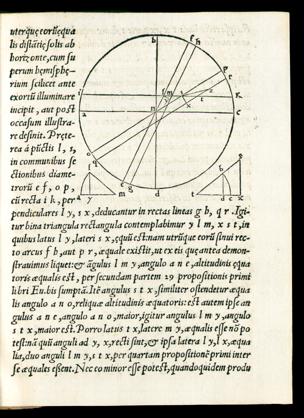 uterque eorū æqua
lis distātię solis ab
horizonte, cum su
perum hemisphę-
rium scilicet ante
exortū illuminare
incipit, aut post
occasum illustra-
re desinit. Prete-
rea à pūctis l, s,
in communibus se
ctionibus diame-
trorū e f, o p,
cū recta i k, per
pendiculares l y, s x, deducantur in rectas lineas g b, q r. Igi-
tur bina triangula rectangula contemplabimur y l m, x s t, in
quibus latus l y, lateri s x, equū est nam utrūque eorū sinui rec-
to arcus f b, aut p r, æquale existit, ut ex iis quę antea demon-
strauimus liquet: & āgulus l m y, angulo a n e, altitudinis equa
toris æqualis est, per secundam partem 29 propositionis primi
libri Eu. bis sumptā. Itē angulus s t x, similiter ostendetur æqua
lis angulo a n o, reliquæ altitudinis æquatoris: est autem ipse an
gulus a n e, angulo a n o, maior, igitur angulus l m y, angulo
s t x, maior est. Porro latus t x, latere m y, æqualis esse nō po
test: nā quū anguli ad y, x, recti sint, & ipsa latera l y, l x, æqua
lia, duo anguli l m y, s t x, per quartam propositionē primi inter
se æquales eßent. Nec eo minor esse potest, quandoquidem produ